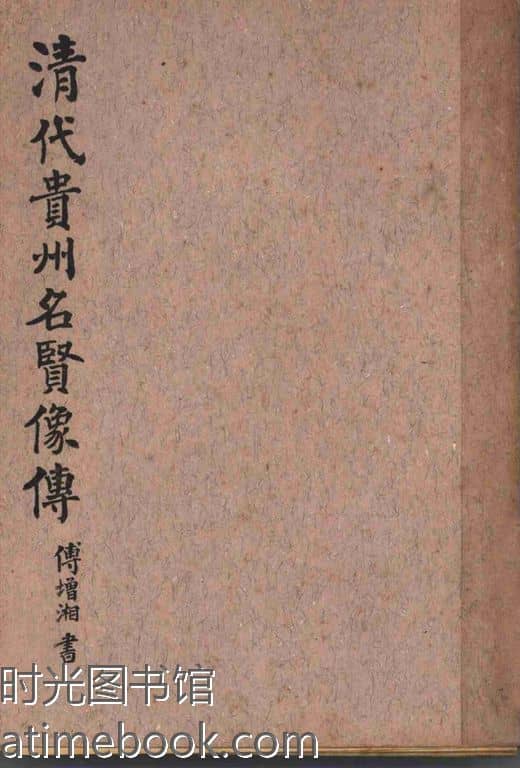 清代貴州名賢像傳
傅增湘書
时光图书馆
atimebook.com